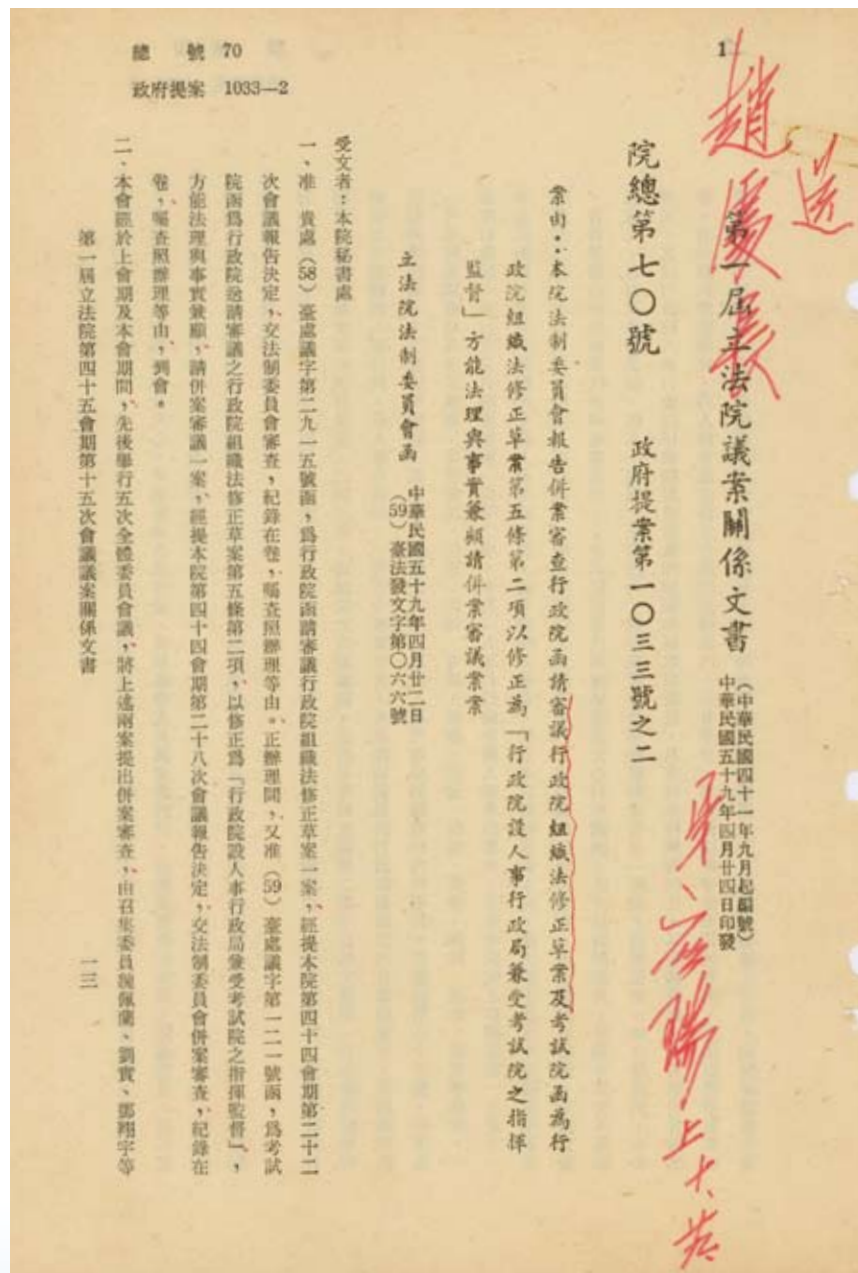 總號 70
政府提案 1033—2
1
第一屆立法院議案關係文書
(中華民國四十一年九月起編號)
中華民國五十九年四月廿四日印發
院總第七〇號
政府提案第一〇三三號之二
案由:本院法制委員會報告併案審查行政院函請審議行政院組織法修正草案及考試院函為行
政院組織法修正草案第五條第二項以修正為「行政院設人事行政局兼受考試院之指揮
監督」方能法理與事實兼顧請併案審議案案
立法院法制委員會函
中華民國五十九年四月廿二日
(59)臺法發文字第〇六六號
受文者:本院秘書處
一、准 貴處(58)臺處議字第二九一五號函,爲行政院函請審議行政院組織法修正草案一案,經提本院第四十四會期第二十二
次會議報告決定,交法制委員會審查,紀錄在卷,囑查照辦理等由。正辦理間,又准(59)臺處議字第一二一號函,爲考試
院函爲行政院送請審議之行政院組織法修正草案第五條第二項,以修正爲「行政院設人事行政局兼受考試院之指揮監督」,
方能法理與事實兼顧,請併案審議一案,經提本院第四十四會期第二十八次會議報告決定,交法制委員會併案審查,紀錄在
卷,囑查照辦理等由,到會。
二、本會經於上會期及本會期間,先後舉行五次全體委員會議,將上述兩案提出併案審查,由召集委員佩蘭、劉實、鄧翔宇等
第一屆立法院第四十五會期第十五次會議議案關係文書
一三